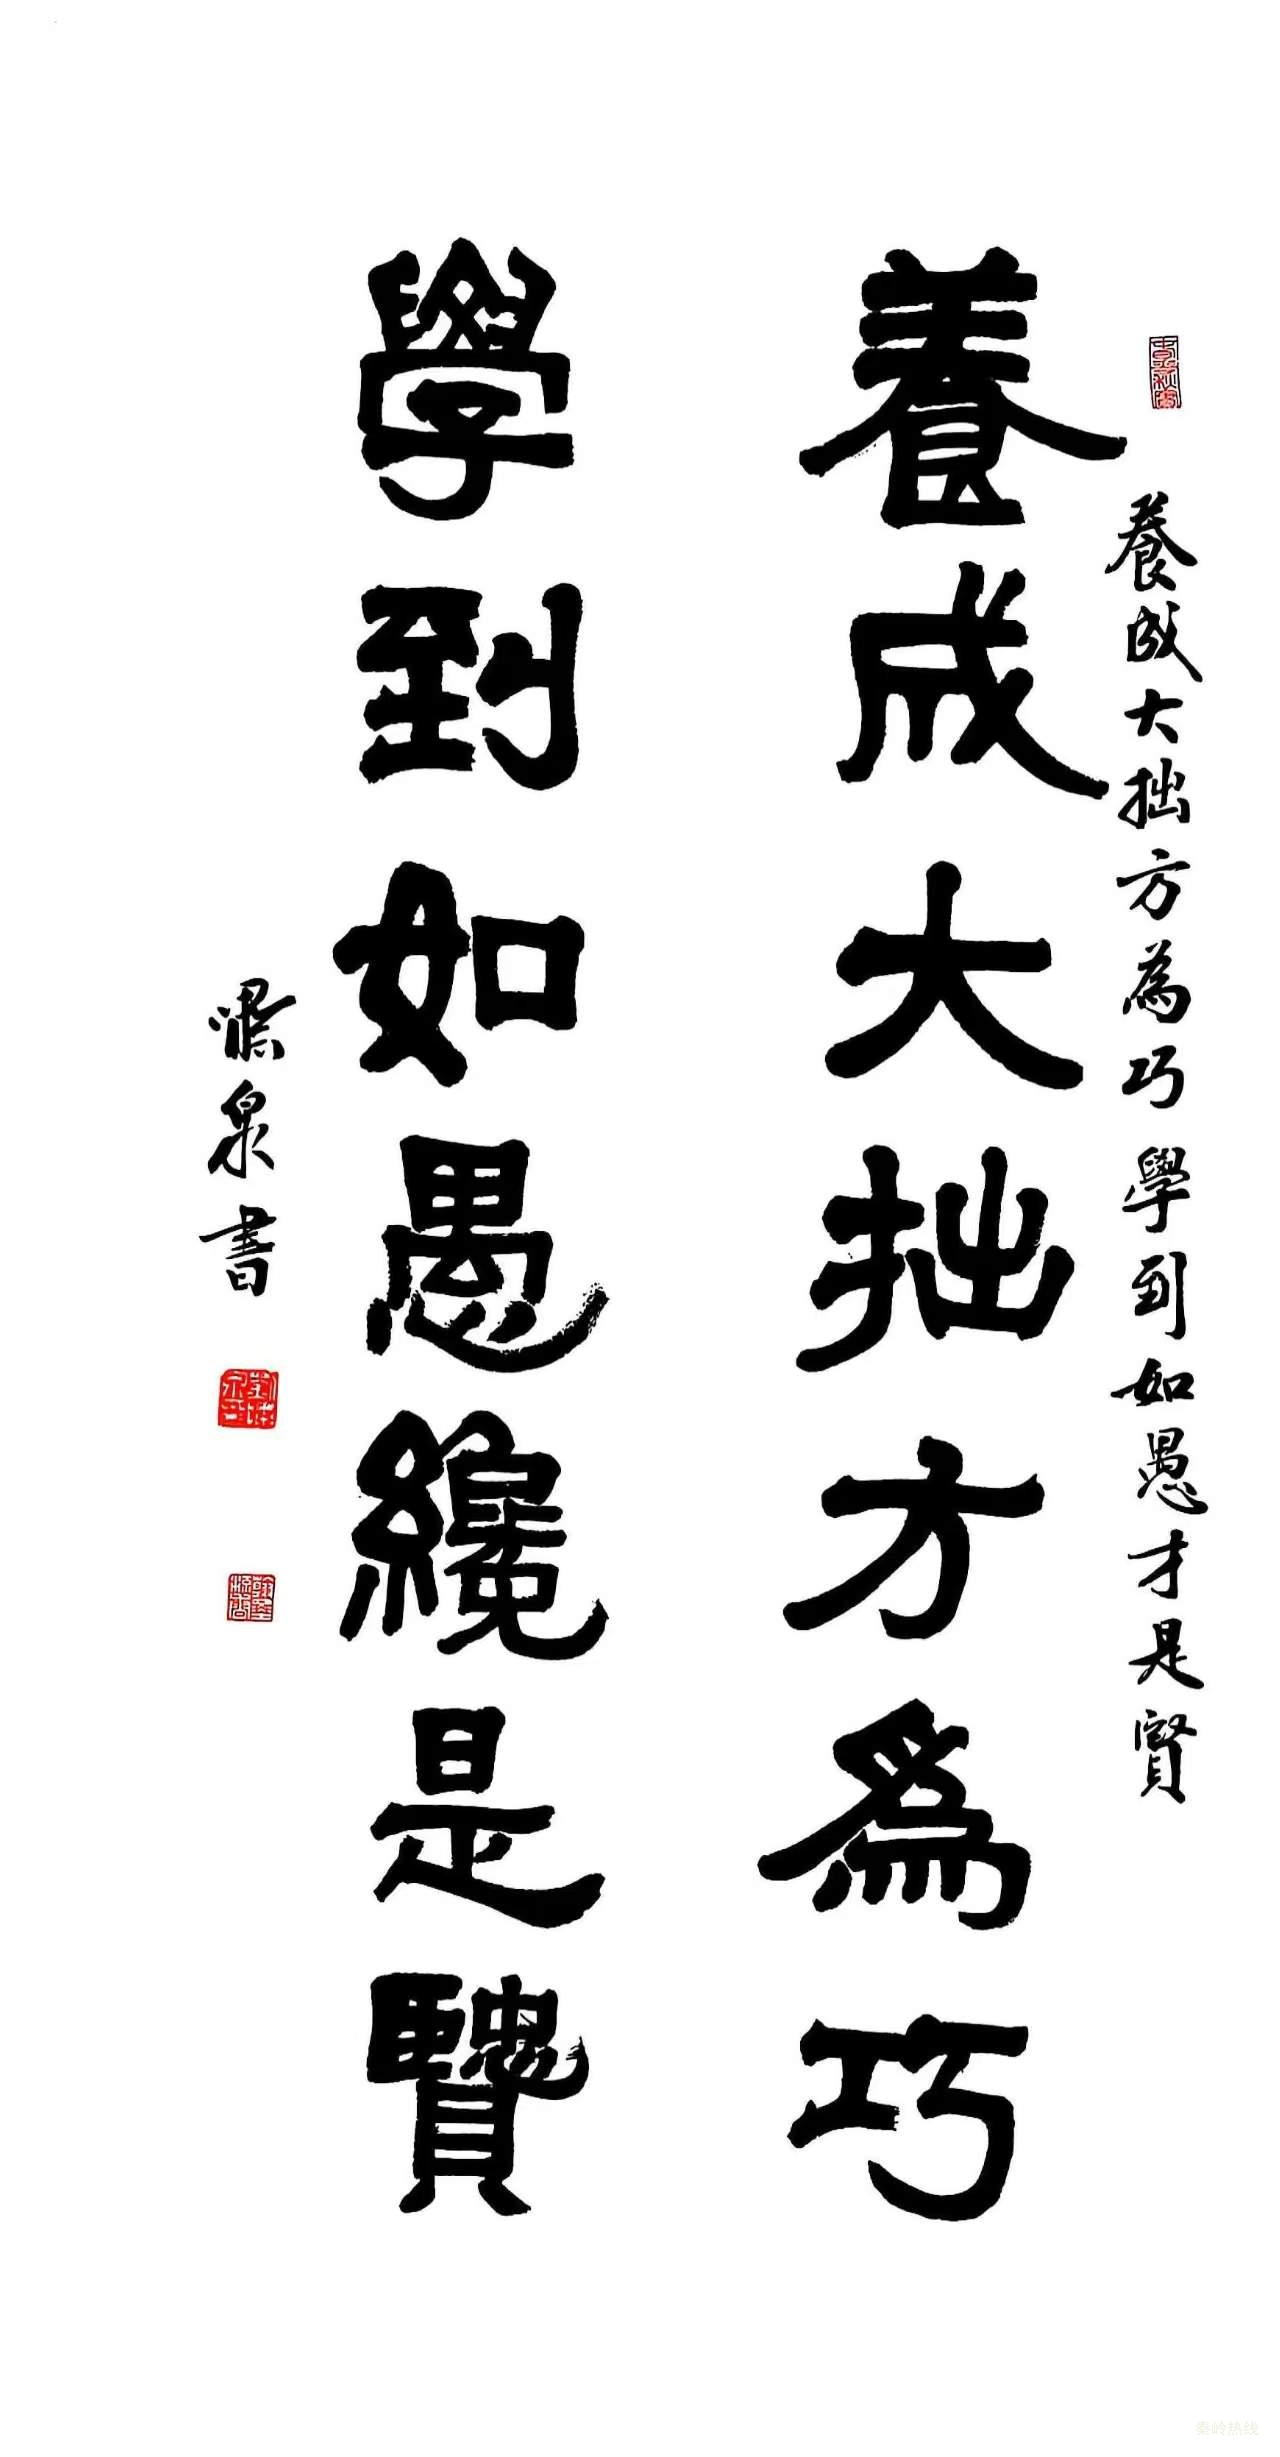 養成大拙方為巧學到如愚才是賢
養成大拙方為巧
學到如愚纔是賢
泉書
秦岭热线